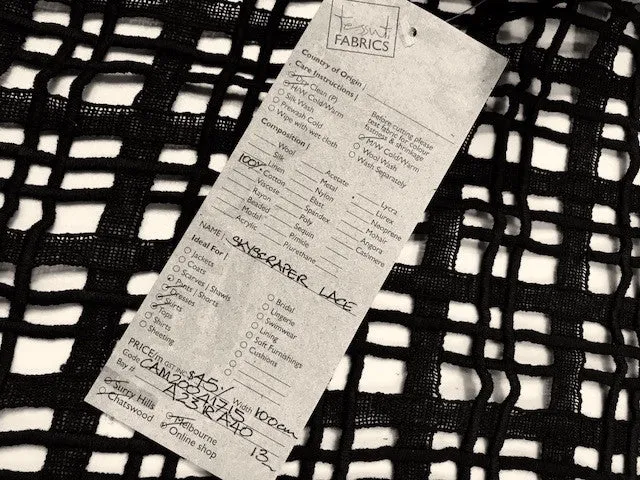 Tessuti
FABRICS
Country of Origin |
Care Instructions |
Dry Clean (P)
M/W Cold/Warm
Silk Wash
Prewash Cold
Wipe with wet cloth
Before cutting please
test fabric for colour
fastness & shrinkage
M/W Cold/Warm
Wool Wash
Wash separately
Composition |
Wool
Silk
Linen
100% Cotton
Viscose
Rayon
Beaded
Modal
Acrylic
Acetate
Metal
Nylon
Elas
Spandex
Poly
Sequin
Pinole
Plurethane
Lycra
Lurex
Neoprene
Mohair
Angora
Cashmere
NAME | SKYSCRAPER LACE
Ideal For |
Jackets
Coats
Scarves | Shawls
Pants | Shorts
Dresses
Skirts
Tops
Shirts
Sheeting
Bridal
Lingerie
Swimwear
Lining
Soft Furnishings
Cushions
PRICE/m GST INC $45/- Width 100cm
Code
Bay # 13
Surry Hills
Melbourne
Chatswood
Online shop